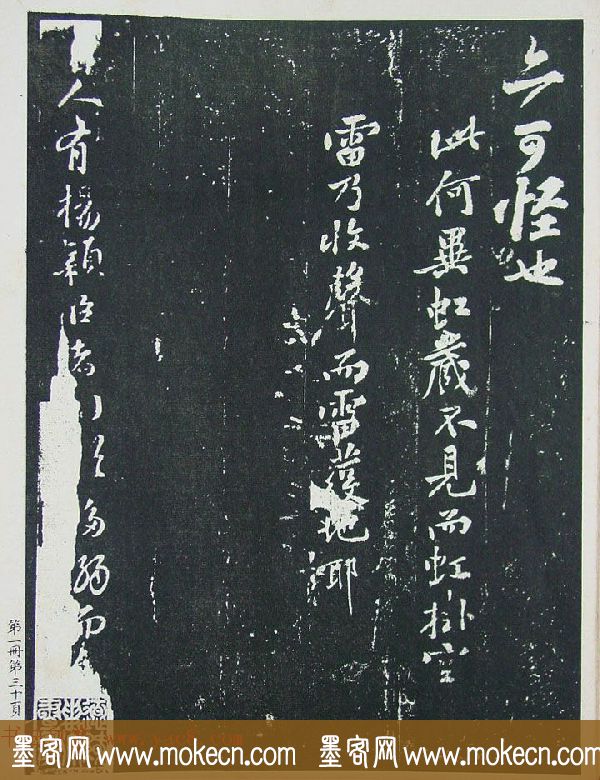 亦可怪也
此何異虹藏不見而虹掛空
雷乃收聲而雷發地耶
人有楊穎臣者
而
第一冊第三十頁
墨客网 www.mokecn.com 墨客网 www.mokecn.com